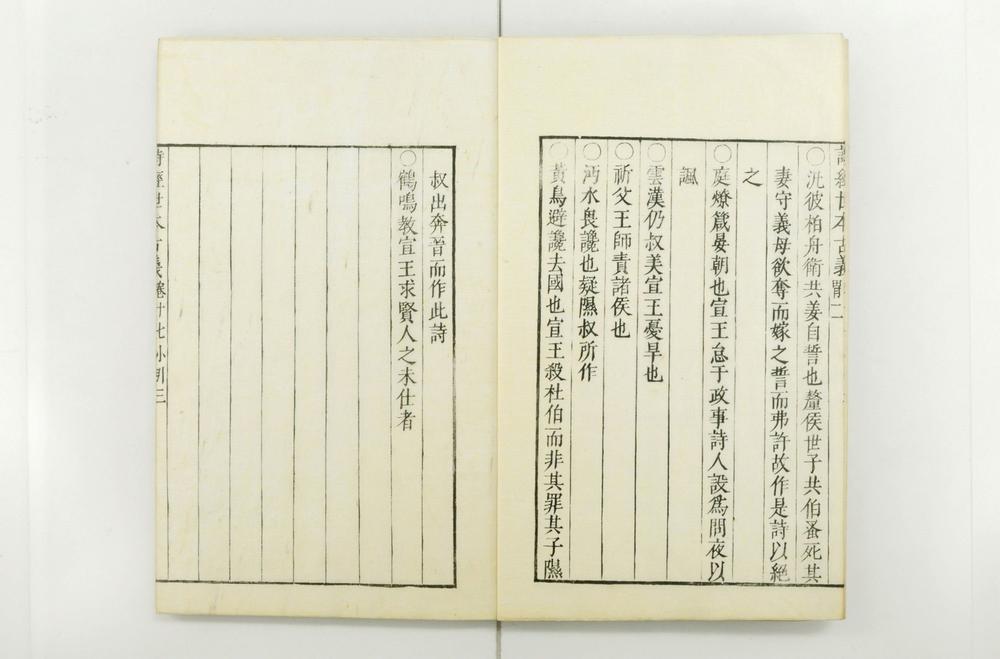 詩經世本古義
○汎彼柏舟衛共姜自誓也釐侯世子共伯蚤死其
妻守義母欲奪而嫁之誓而弗許故作是詩以絕
之
○庭燎箴晏朝也宣王怠于政事詩人設為問夜以
諷
○雲漢仍叔美宣王憂旱也
○祈父王師責諸侯也
○沔水畏讒也疑隰叔所作
○黃鳥避讒去國也宣王殺杜伯而非其罪其子隰
叔出奔晉而作此詩
○鶴鳴教宣王求賢人之未仕者
詩經世本古義卷十七小引三